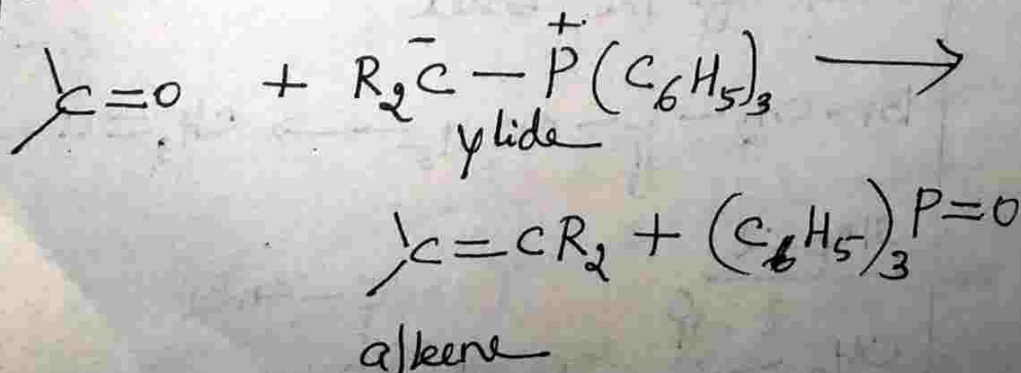 C=O + R₂C̄ — P⁺(C₆H₅)₃ ⟶
ylide
C=CR₂ + (C₆H₅)₃P=O
alkene